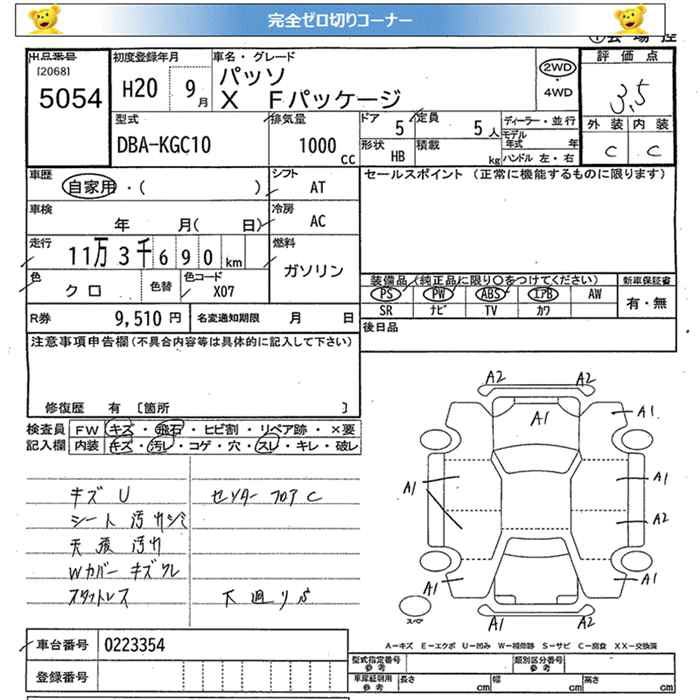 完全ゼロ切りコーナー
出品番号
[2068]
5054
初度登録年月
H20 9月
車名・グレード
パッソ
X Fパッケージ
2WD
・
4WD
評価点
3.5
外装 内装
C C
型式
DBA-KGC10
排気量
1000 CC
ドア 5
定員 5人
形状 HB
積載 kg
ディーラー・並行
モデル年式 年
ハンドル 左・右
車歴
自家用・( )
シフト
AT
セールスポイント (正常に機能するものに限ります)
車検
年 月( 日)
冷房
AC
走行
11万3千690km
燃料
ガソリン
色
クロ
色替
色コード
X07
装備品(純正品に限り○をつけてください)
PS PW ABS エアB AW
SR ナビ TV カワ
新車保証書
有・無
R券 9,510円
名変通知期限 月 日
後日品
注意事項申告欄(不具合内容等は具体的に記入して下さい)
修復歴 有 [箇所 ]
検査員記入欄
FW キズ・飛石・ヒビ割・リペア跡・×要
内装 キズ・汚レ・コゲ・穴・スレ・キレ・破レ
キズ U
センターフロア C
シート 汚レシミ
天張 汚レ
Wカバー キズ クレ
スタットレス
下廻りS
A2 A2
A1
A1
A1
A1
A2
A1
A1
A2 A2
スペア
A=キズ E=エクボ U=凹み W=補修跡 S=サビ C=腐食 XX=交換済
車台番号 0223354
登録番号
型式指定番号
参考
類別区分番号
参考
車庫証明用
参考
長さ cm 幅 cm 高さ cm